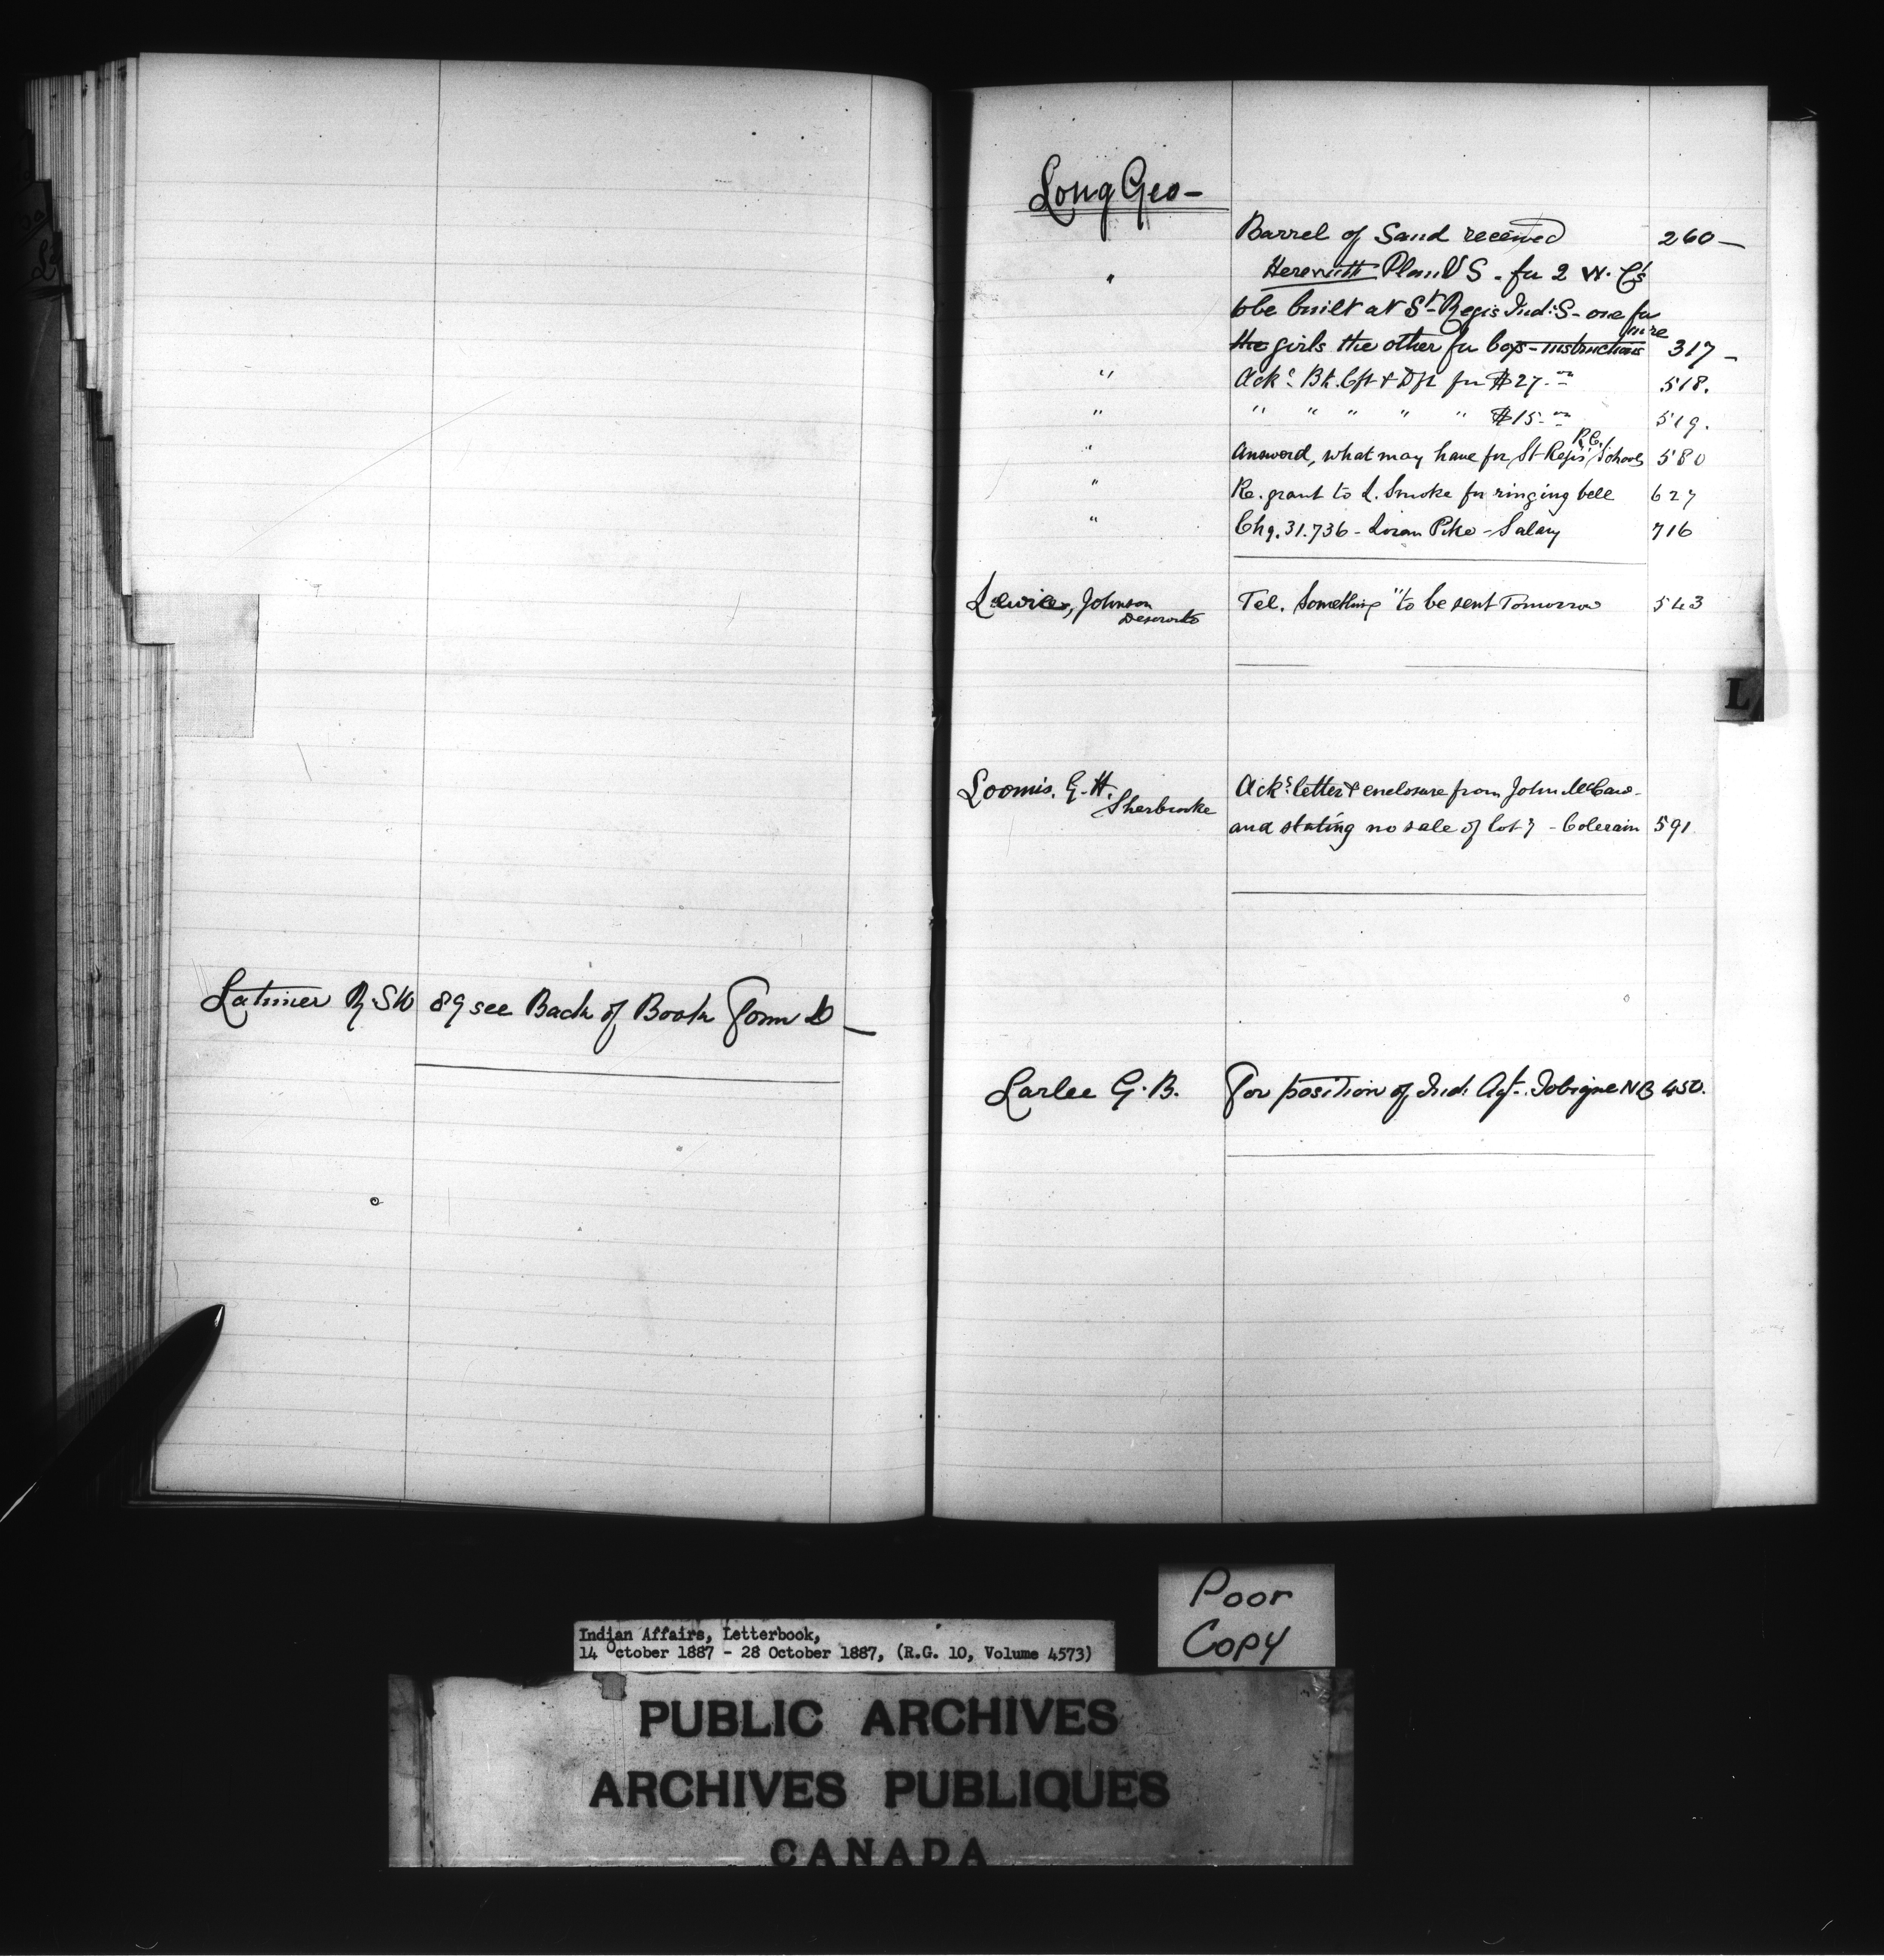 Latimer R. SW 89 see Back of Book Form D —
Long Geo —
Barrel of Sand received 260 —
" Herewith Plan & S - for 2 W. C's
to be built at St Regis Ind: S - one for
the girls the other for boys - instructions 317 —
more
" Ack: Bk. Cft & Dft for $27.00 518.
" " " " " " $15.00 519.
R.C.
" Answerd, what may have for St Regis Schools 580
" Re. grant to L. Smoke for ringing bell 627
" Chq. 31.736 - Loran Pike - Salary 716
Johnson Tel. Something "to be sent Tomorrow 543
Deseronto
L
Loomis, G. H. Ack: letter & enclosure from John
Sherbrooke
and stating no sale of lot 7 - Colerain 591
Larlee G. B. For position of Ind. Agt. Tobique NB 450.
Poor
Copy
Indian Affairs, Letterbook,
14 October 1887 - 28 October 1887, (R.G. 10, Volume 4573)
PUBLIC ARCHIVES
ARCHIVES PUBLIQUES
CANADA